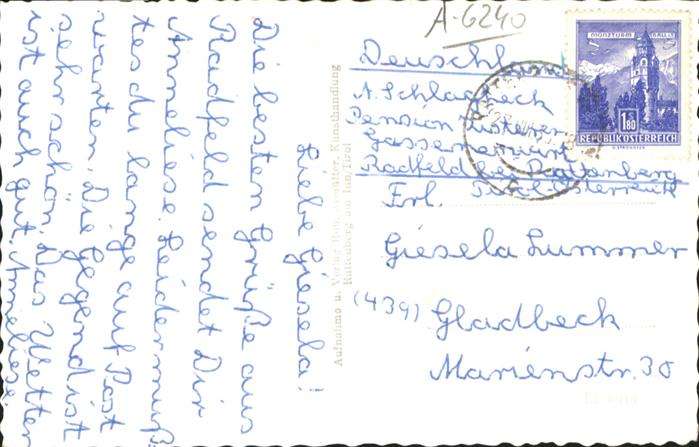 Liebe Giesela!
Die besten Grüße aus
Radfeld sendet Dir
Anneliese. Leider muß=
test du lange auf Post
warten. Die Gegend ist
sehr schön. Das Wetter
ist auch gut. Anneliese.
A-6240
Deutschland
A. Schlagbeck
Pension
Radfeld bei Rattenberg
Tirol-Österreich
Frl.
Giesela Lummer
(439) Gladbeck
Mariénstr. 30
MÜNZTURM HALL i. T.
1.80
REPUBLIK ÖSTERREICH
Aufnahme u. Verlag Kunsthandlung
Rattenberg am Inn/Tirol